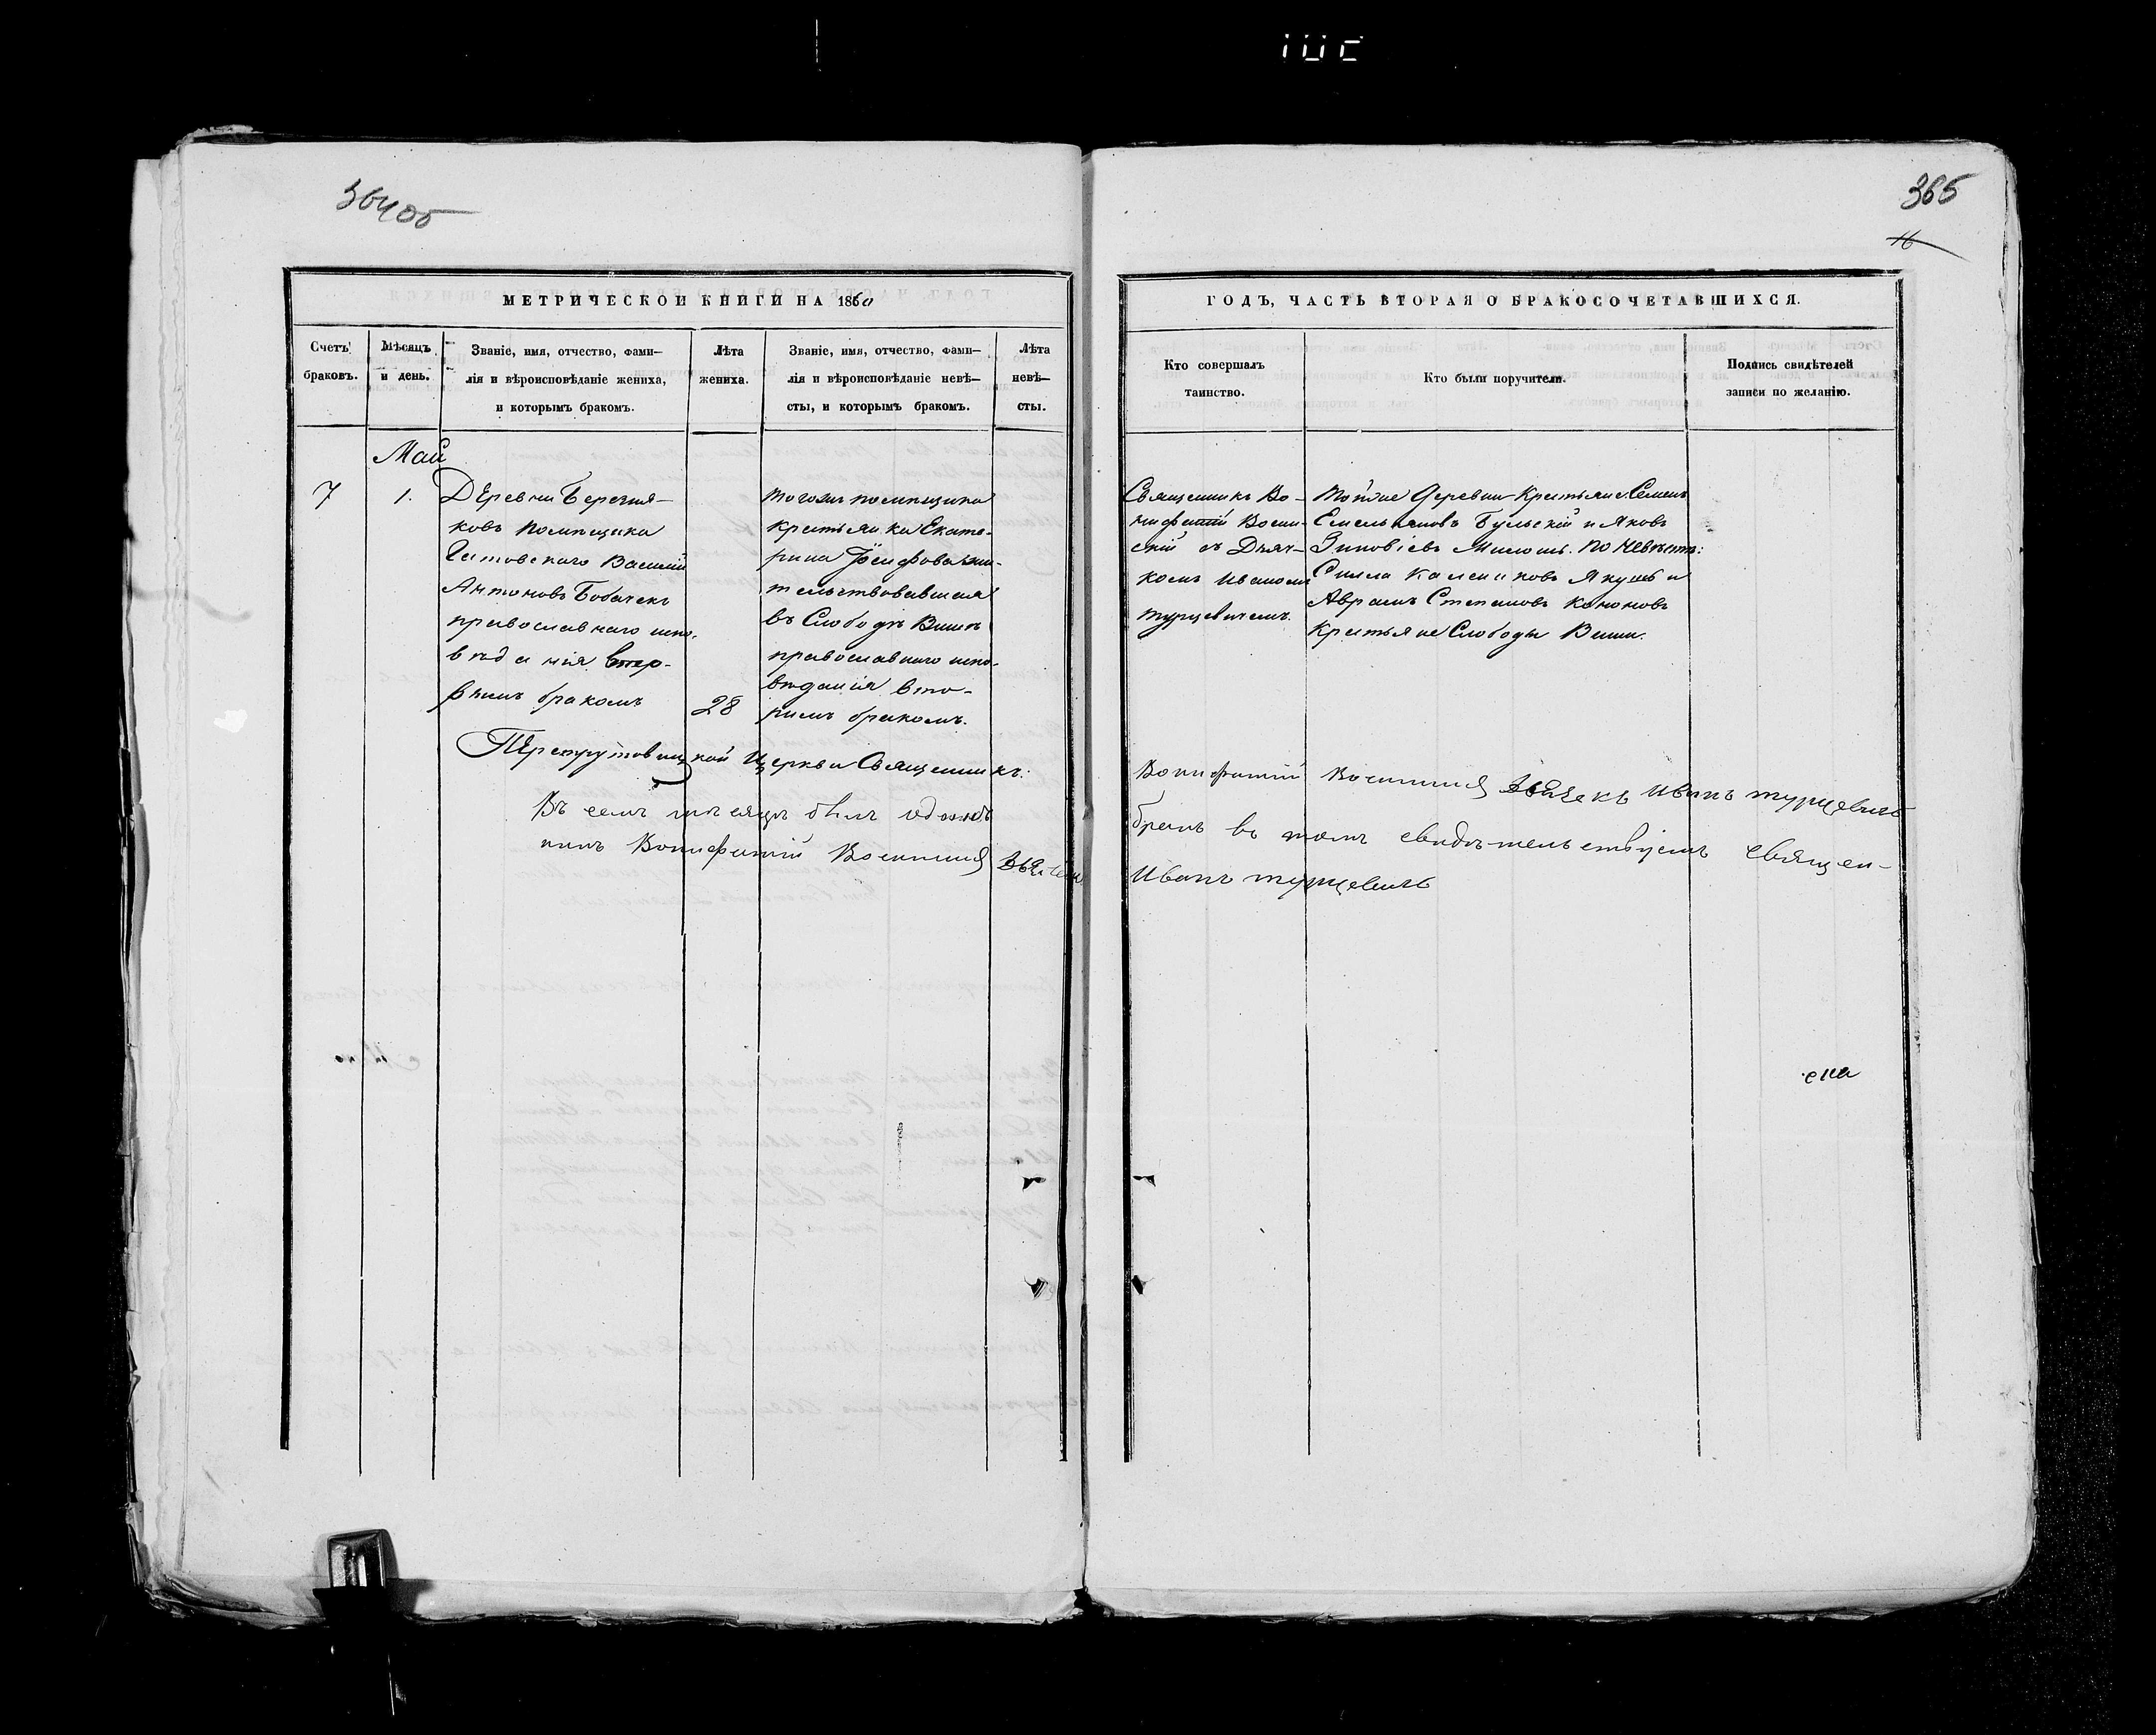 364об
МЕТРИЧЕСКОЙ КНИГИ НА 1860
Счетъ браковъ.
Мѣсяцъ и день.
Званіе, имя, отчество, фами-
лія и вѣроисповѣданіе жениха,
и которымъ бракомъ.
Лѣта
жениха.
Званіе, имя, отчество, фами-
лія и вѣроисповѣданіе невѣ-
сты, и которымъ бракомъ.
Лѣта
невѣ-
сты.
Май
7
1.
Деревни Березня-
ковъ помѣщика
Василий
Антоновъ Бобачекъ
православнаго испо-
вѣданія втор-
бракомъ
28
тогожъ помѣщика
крестьянка Екате-
рина жи-
тельствовавшая
въ Слободѣ
православнаго испо-
вѣданія вто-
римъ бракомъ.
Церкви Священникъ:
Въ семъ мѣсяцѣ былъ одинъ
никъ Вонифатий
365
16
ГОДЪ, ЧАСТЬ ВТОРАЯ О БРАКОСОЧЕТАВШИХСЯ.
Кто совершалъ
таинство.
Кто были поручители.
Подпись свидѣтелей
записи по желанію.
Священникъ Во-
нифатий
скій съ Дьяч-
комъ Иваномъ
Турцевичемъ.
Тойже деревни Крестьяне Семенъ
Емельяновъ Бульскій и Яковъ
Зиновіевъ по невѣстѣ:
Якушъ и
Аврамъ Степановъ Кононовъ
Крестьяне Слободы
Вонифатий Иванъ Турцевичъ
бракъ въ томъ свидѣтельствуемъ священ-
Иванъ Турцевичъ